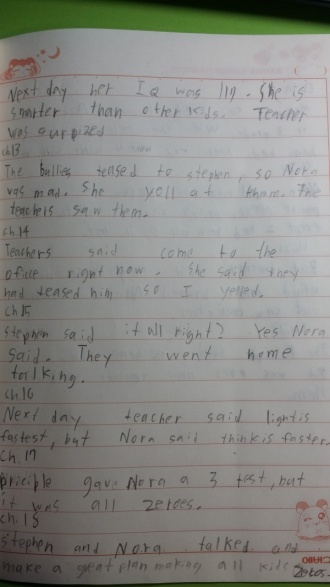 Next day her IQ was 117. She is
smarter than other kids. Teacher
was surpized
ch13
The bullies teased to stephen, so Nora
was mad. She yell at them. The
teachers saw them.
ch.14
Teachers said come to the
office right now. She said they
had teased him so I yelled.
ch15
Stephen said it all right? Yes Nora
said. They went home
talking.
ch.16
Next day teacher said lightis
fastest, but Nora said thinkis faster.
ch.17
priciple gave Nora a 3 test, but
it was all zeroes.
ch.18
Stephen and Nora talked and
make a great plan making all kids
Zeros.